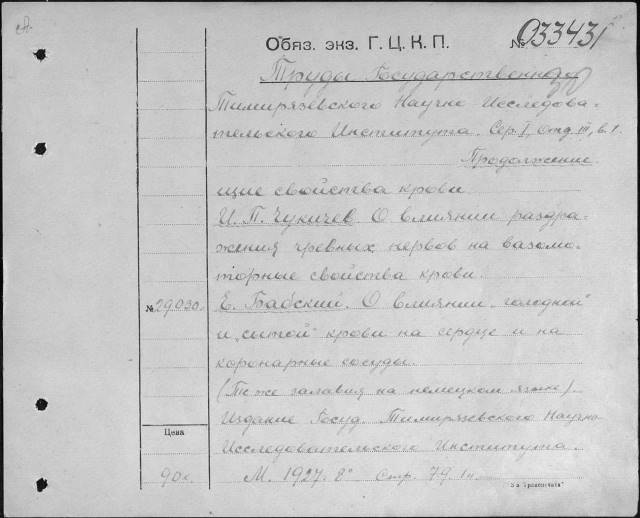 Обяз. экз. Г. Ц. К. П. № 033431
Труды Государственного
Тимирязевского Научно Исследова-
тельского Института. Сер. I, отд. III, в. 1.
Продолжение
щие свойства крови
И. П. Чукичев. О влиянии раздра-
жения чревных нервов на вазомо-
торные свойства крови.
№ 29030. Е. Бабский. О влиянии „голодной"
и „сытой" крови на сердце и на
коронарные сосуды.
(То же заглавия на немецком языке).
Издание Госуд. Тимирязевского Научно
Цена
Исследовательского Института.
90 к. М. 1927. 8° Стр. 79.